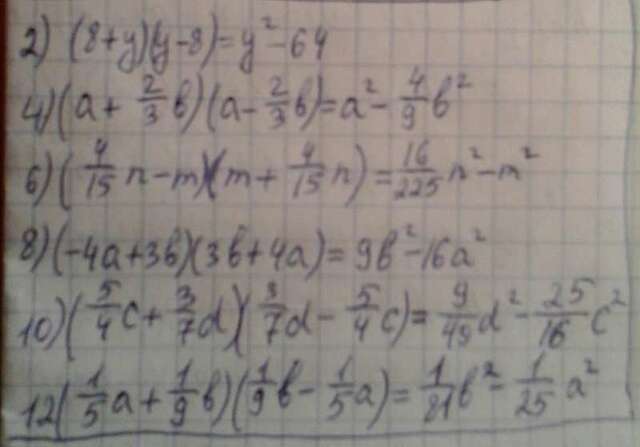 2) (8+y)(y-8)=y²-64
4) (a+2/3b)(a-2/3b)=a²-4/9b²
6) (4/15n-m)(m+4/15n)=16/225n²-m²
8) (-4a+3b)(3b+4a)=9b²-16a²
10) (5/4c+3/7d)(3/7d-5/4c)=9/49d²-25/16c²
12 (1/5a+1/9b)(1/9b-1/5a)=1/81b²-1/25a²